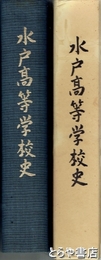 水戸高等学校史
水戸高等学校史
とうや書店